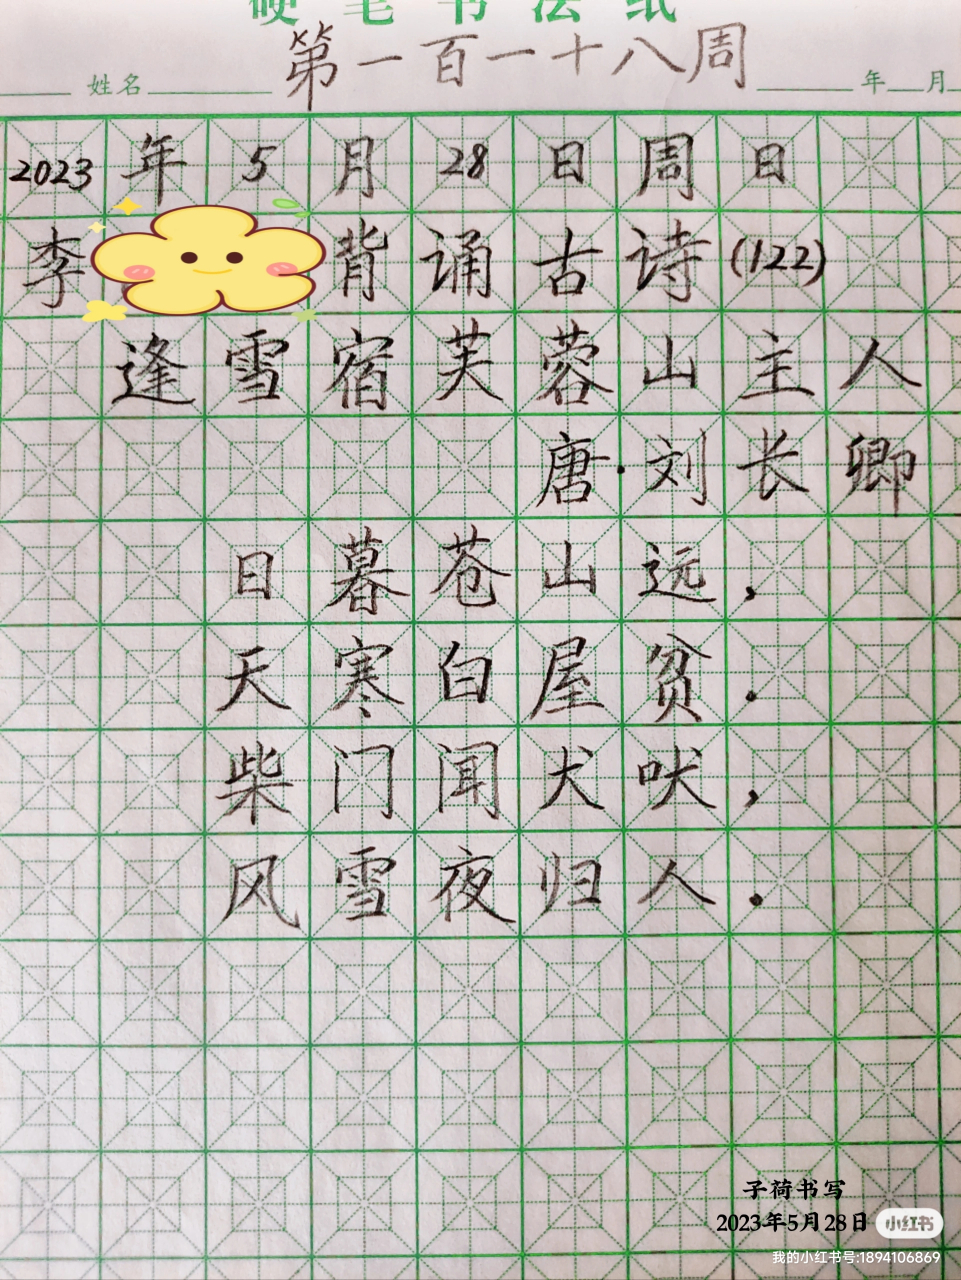 硬笔书法纸
第一百一十八周
姓名 年 月
2023年5月28日周日
李 背诵古诗(122)
逢雪宿芙蓉山主人
唐·刘长卿
日暮苍山远,
天寒白屋贫.
柴门闻犬吠,
风雪夜归人.
子荷书写
2023年5月28日 小红书
我的小红书号:1894106869